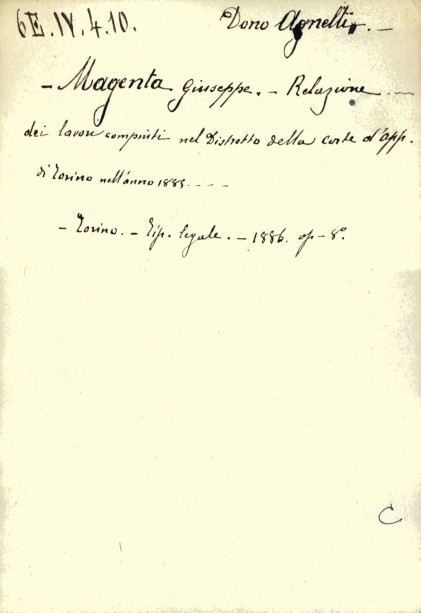 6E.IV.4.10. Dono Agnelli. —
— Magenta Giuseppe. — Relazione....
dei lavori compiuti nel Distretto della corte d'app.
di Torino nell'anno 1885 - - - -
— Torino. — Tip. legale. — 1886. op — 8°.
C